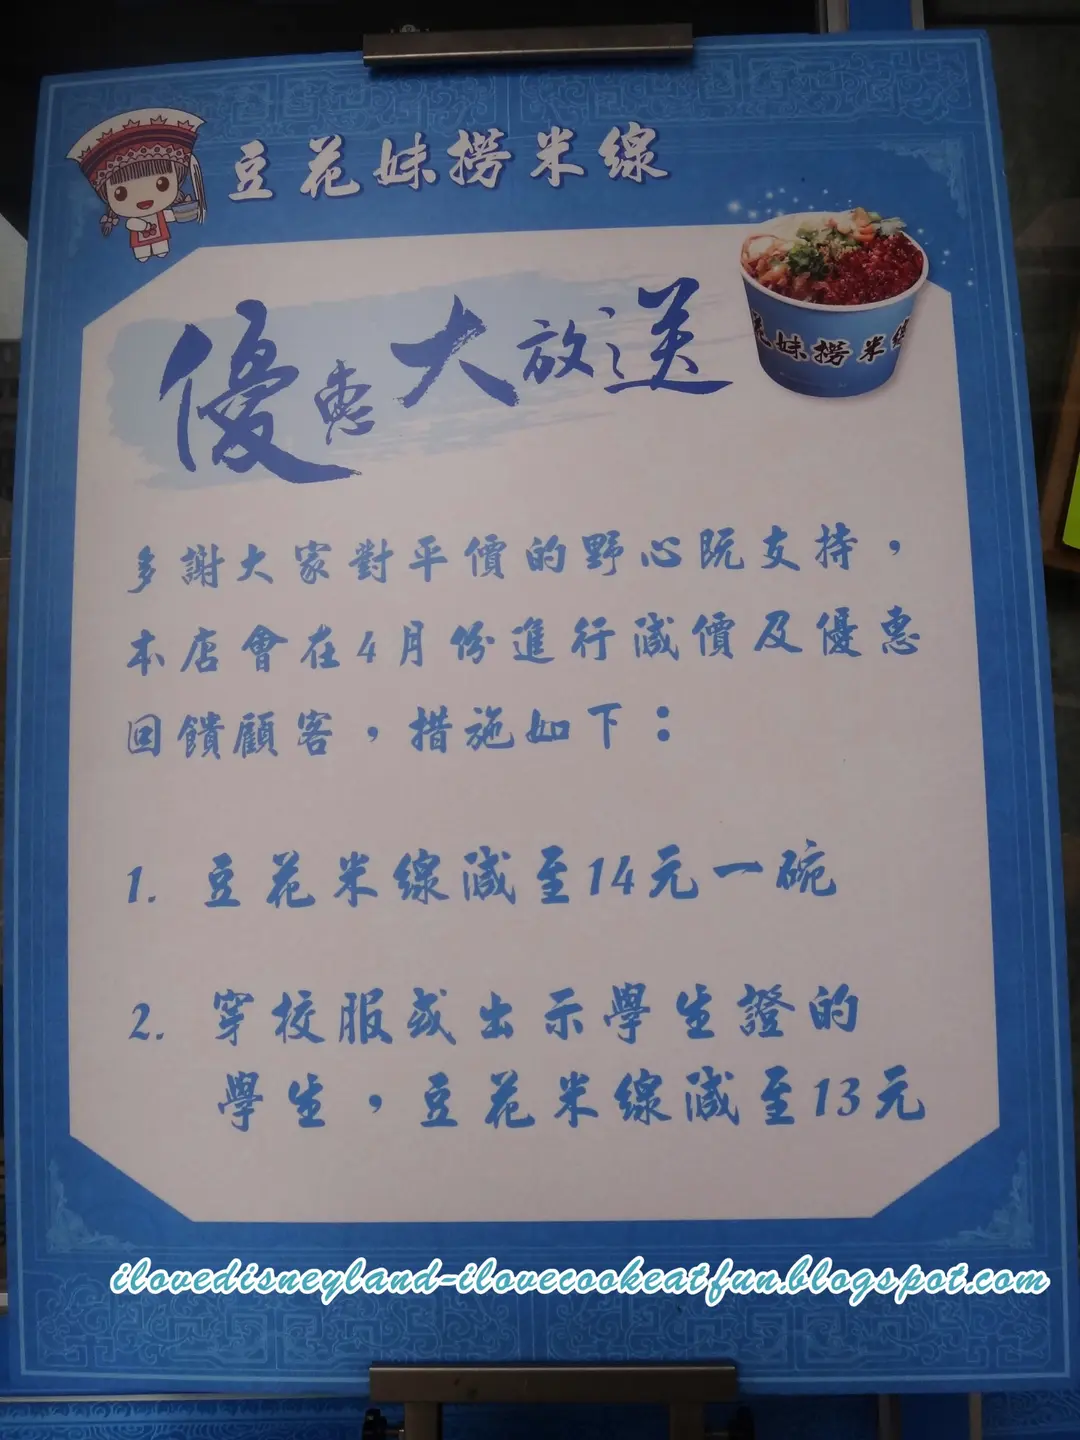 豆花妹撈米線
優惠大放送
花妹撈米線
多謝大家對平價的野心既支持，
本店會在4月份進行減價及優惠
回饋顧客，措施如下：
1. 豆花米線減至14元一碗
2. 穿校服或出示學生證的
學生，豆花米線減至13元
ilovedisneyland-ilovecookeatfun.blogspot.com